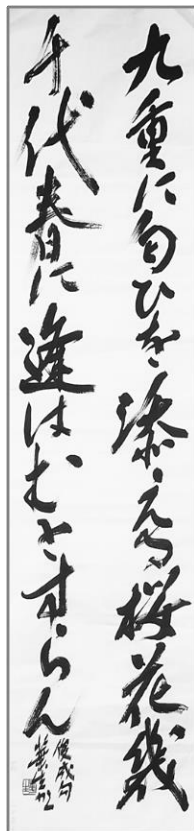 九重に匂ひを添ふる桜花幾
千代春に逢はむとすらん
俊成句